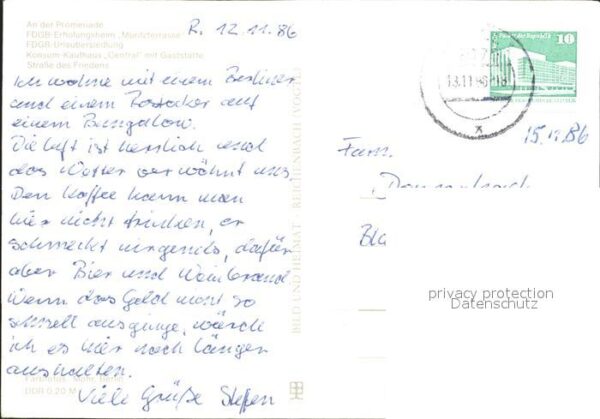 An der Promenade
FDGB-Erholungsheim „Müritzterrasse"
FDGB-Urlaubersiedlung
Konsum-Kaufhaus „Central" mit Gaststätte
Straße des Friedens
R. 12.11.86
Ich wohne mit einem Berliner
und einem Rostocker auf
einem Bungalow.
Die Luft ist herrlich und
das Wetter verwöhnt uns.
Den Kaffee kann man
hier nicht trinken, er
schmeckt nirgends, dafür
aber Bier und Weinbrand
Wenn das Geld nicht so
schnell ausginge, würde
ich es hier noch länger
aushalten.
Viele Grüße Steffen
Farbfotos: Mohr, Berlin
DDR 0,20 M
BILD UND HEIMAT · REICHENBACH (VOGTL)
Palast der Republik 10
13.11.86-18
15.11.86
Fam.
privacy protection
Datenschutz